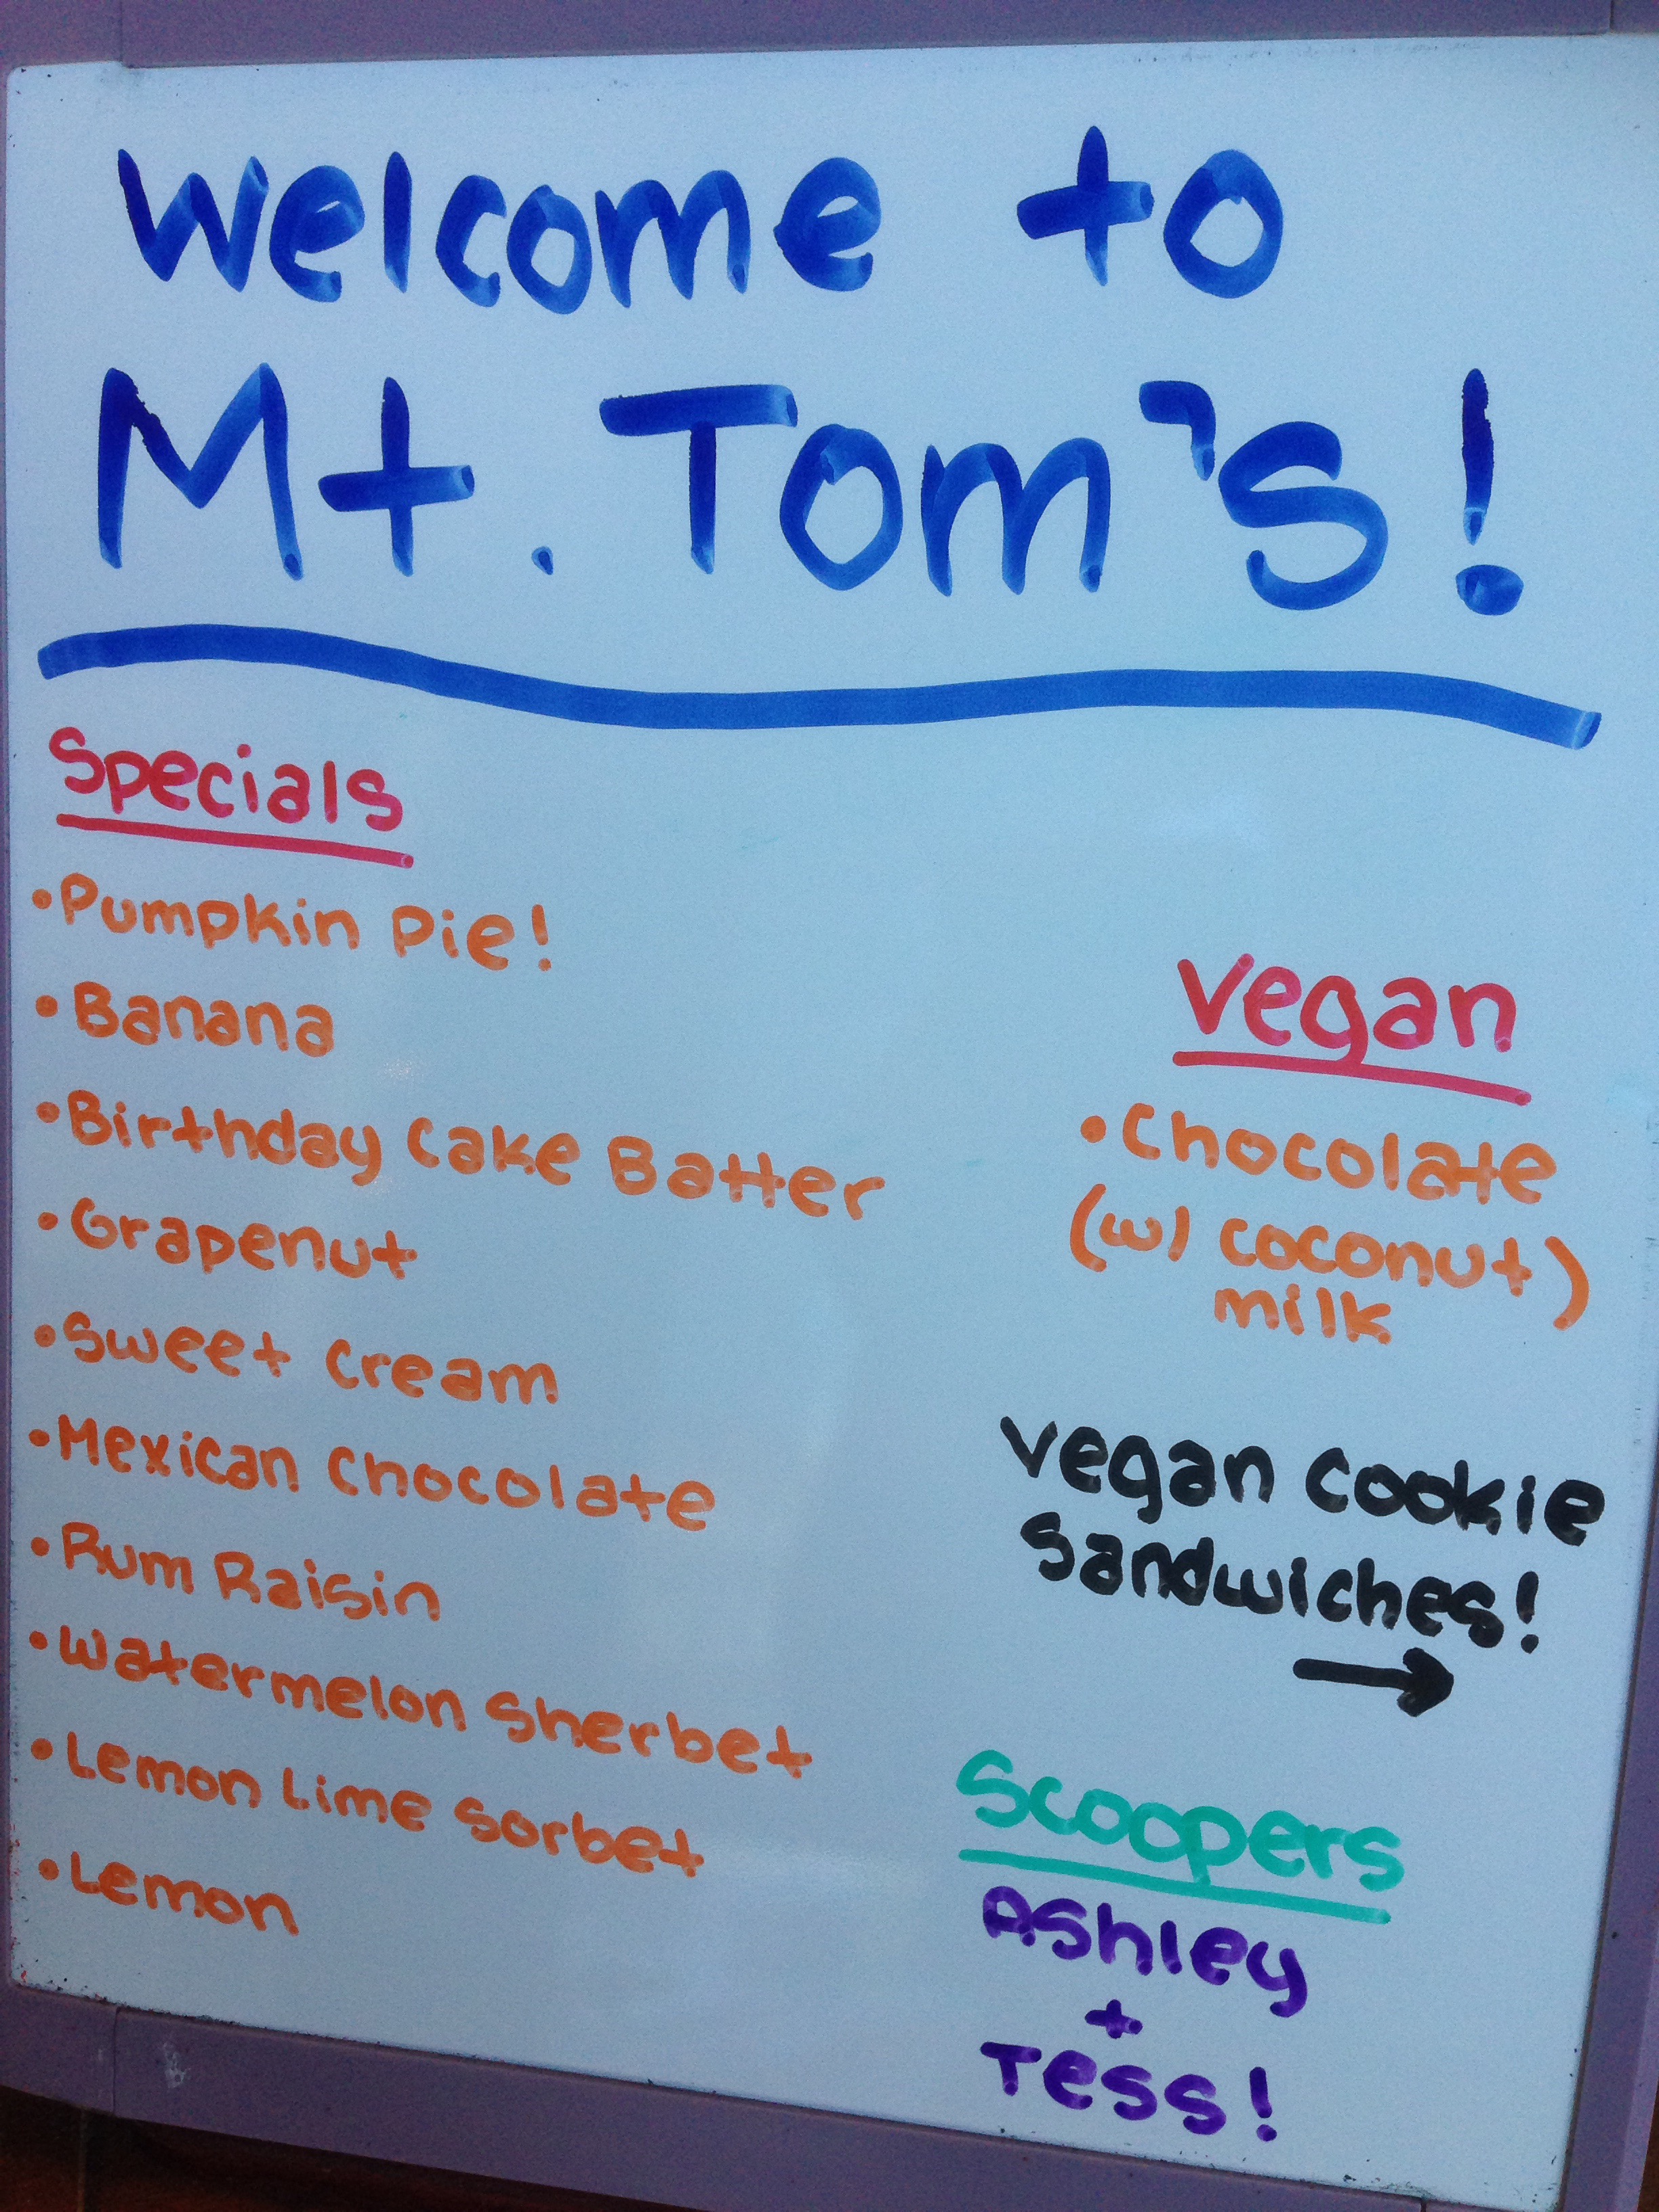 Welcome to
Mt. Tom's!
Specials
• Pumpkin Pie!
• Banana
• Birthday Cake Batter
• Grapenut
• Sweet Cream
• Mexican Chocolate
• Rum Raisin
• Watermelon Sherbet
• Lemon Lime Sorbet
• Lemon
Vegan
• Chocolate
(w/ coconut)
milk
Vegan Cookie
Sandwiches!
→
Scoopers
Ashley
+
Tess!